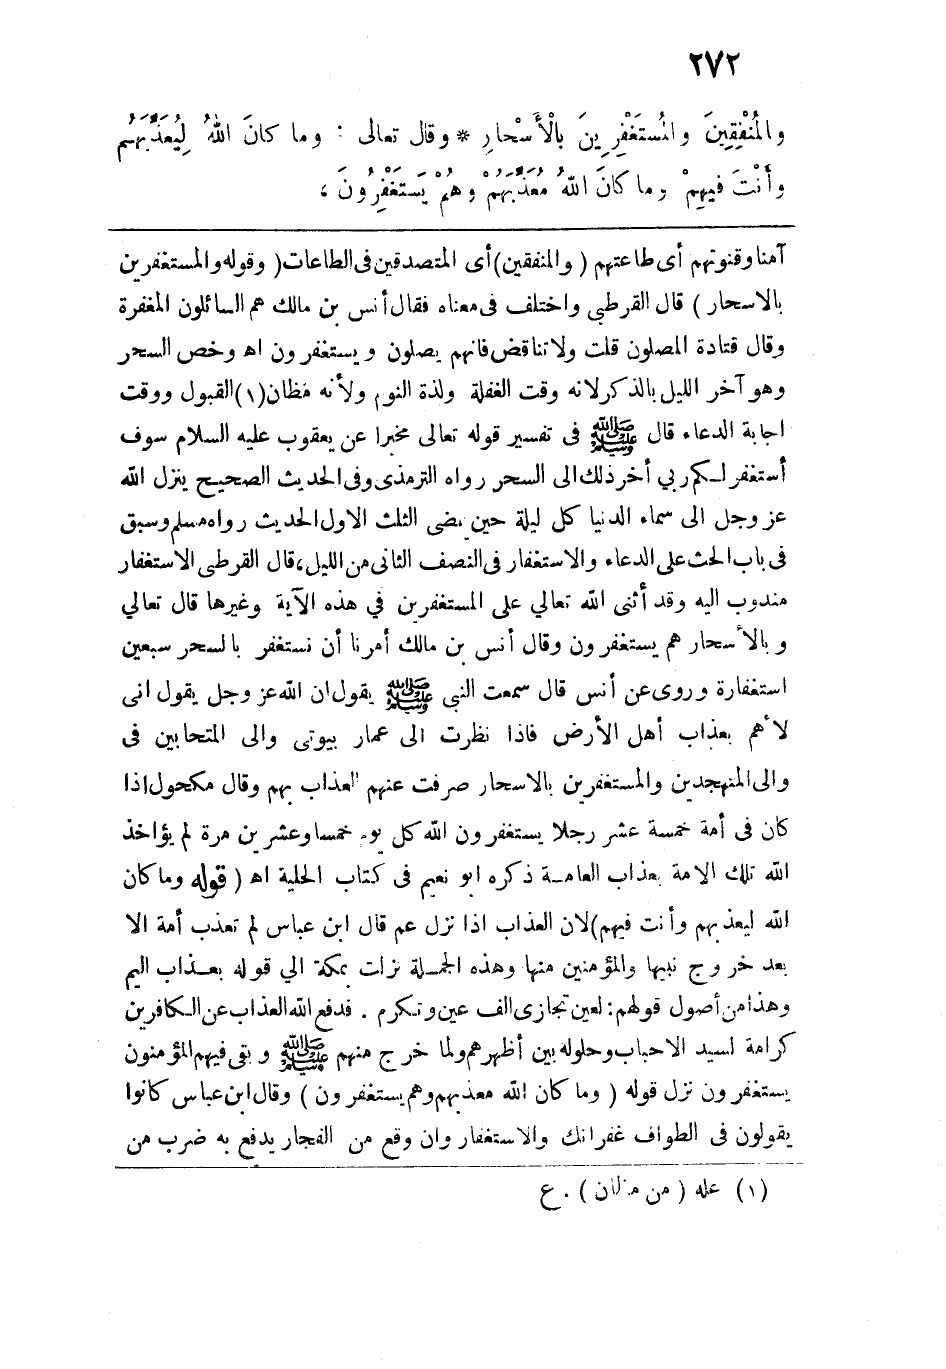 ٢٧٢
وَالْمُنْفِقِينَ وَالْمُسْتَغْفِرِينَ بِالْأَسْحَارِ * وقال تعالى : وما كانَ اللهُ لِيُعَذِّبَهُمْ
وأَنْتَ فيهِمْ وما كانَ اللهُ مُعَذِّبَهُمْ وهُمْ يَسْتَغْفِرُونَ ،
آمنا وقنوتهم أى طاعتهم ( والمنفقين) أى المتصدقين فى الطاعات( وقوله والمستغفرين
بالاسحار ) قال القرطبى واختلف فى معناه فقال أنس بن مالك هم السائلون المغفرة
وقال قتادة المصلون قلت ولا تناقض فانهم يصلون ويستغفرون اه وخص السحر
وهو آخر الليل بالذكر لانه وقت الغفلة ولذة النوم ولأنه مظان(١)القبول ووقت
اجابة الدعاء قال ﷺ فى تفسير قوله تعالى مخبرا عن يعقوب عليه السلام سوف
أستغفر لكم ربي أخر ذلك الى السحر رواه الترمذى وفى الحديث الصحيح ينزل الله
عز وجل الى سماء الدنيا كل ليلة حين يمضى الثلث الاول الحديث رواه مسلم وسبق
فى باب الحث على الدعاء والاستغفار فى النصف الثانى من الليل، قال القرطبى الاستغفار
مندوب اليه وقد أثنى الله تعالي على المستغفرين في هذه الآية وغيرها قال تعالي
وبالأسحار هم يستغفرون وقال أنس بن مالك أمرنا أن نستغفر بالسحر سبعين
استغفارة وروى عن أنس قال سمعت النبى ﷺ يقول ان الله عز وجل يقول انى
لأهم بعذاب أهل الأرض فاذا نظرت الى عمار بيوتى والى المتحابين فى
والى المتهجدين والمستغفرين بالاسحار صرفت عنهم العذاب بهم وقال مكحول اذا
كان فى أمة خمسة عشر رجلا يستغفرون الله كل يوم خمسا وعشرين مرة لم يؤاخذ
الله تلك الامة بعذاب العامة ذكره ابو نعيم فى كتاب الحلية اه ( قوله وما كان
الله ليعذبهم وأنت فيهم)لان العذاب اذا نزل عم قال ابن عباس لم تعذب أمة الا
بعد خروج نبيها والمؤمنين منها وهذه الجملة نزلت بمكة الي قوله بعذاب اليم
وهذا من أصول قولهم: لعين تجازى الف عين وتكرم . فدفع الله العذاب عن الكافرين
كرامة لسيد الاحباب وحلوله بين أظهرهم ولما خرج منهم ﷺ وبقى فيهم المؤمنون
يستغفرون نزل قوله ( وما كان الله معذبهم وهم يستغفرون ) وقال ابن عباس كانوا
يقولون فى الطواف غفرانك والاستغفار وان وقع من الفجار يدفع به ضرب من
(١) عله ( من مظان ) . ع